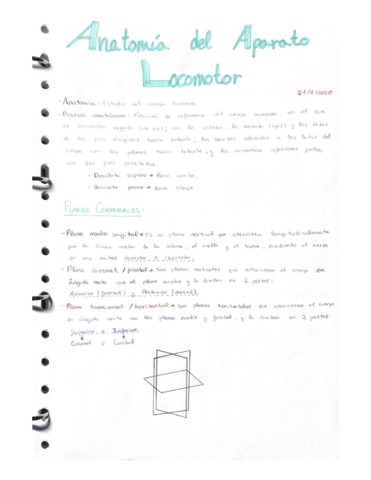 Anatomía del Aparato
Locomotor
- Anatomía: Estudio del cuerpo humano.
- Posición anatómica: Posición de referencia del cuerpo humano, en el que
se encuentra erguido (de pie); con la cabeza, la mirada (ojos) y los
de los pies dirigidos hacia delante; los brazos a los lados del
cuerpo con las palmas hacia delante; y los miembros inferiores juntos,
con los pies paralelos.
• Decúbito supino → Boca arriba.
• Decúbito prono → Boca abajo.
PLANOS CORPORALES:
- Plano medio sagital → Es un plano vertical que atraviesa longitudinalmente
por la línea media de la cabeza, el cuello y el tronco, dividiendo el cuerpo
en dos mitades derecha e izquierda.
- Plano coronal / frontal → Son planos verticales que atraviesan el cuerpo en
ángulo recto con el plano medio y lo dividen en 2 partes:
Anterior (frontal) y Posterior (dorsal).
- Plano transversal / horizontal → Son planos horizontales que atraviesan el cuerpo
en ángulo recto con los planos medio y frontal, y lo dividen en 2 partes:
Superior e Inferior.
Craneal o Caudal